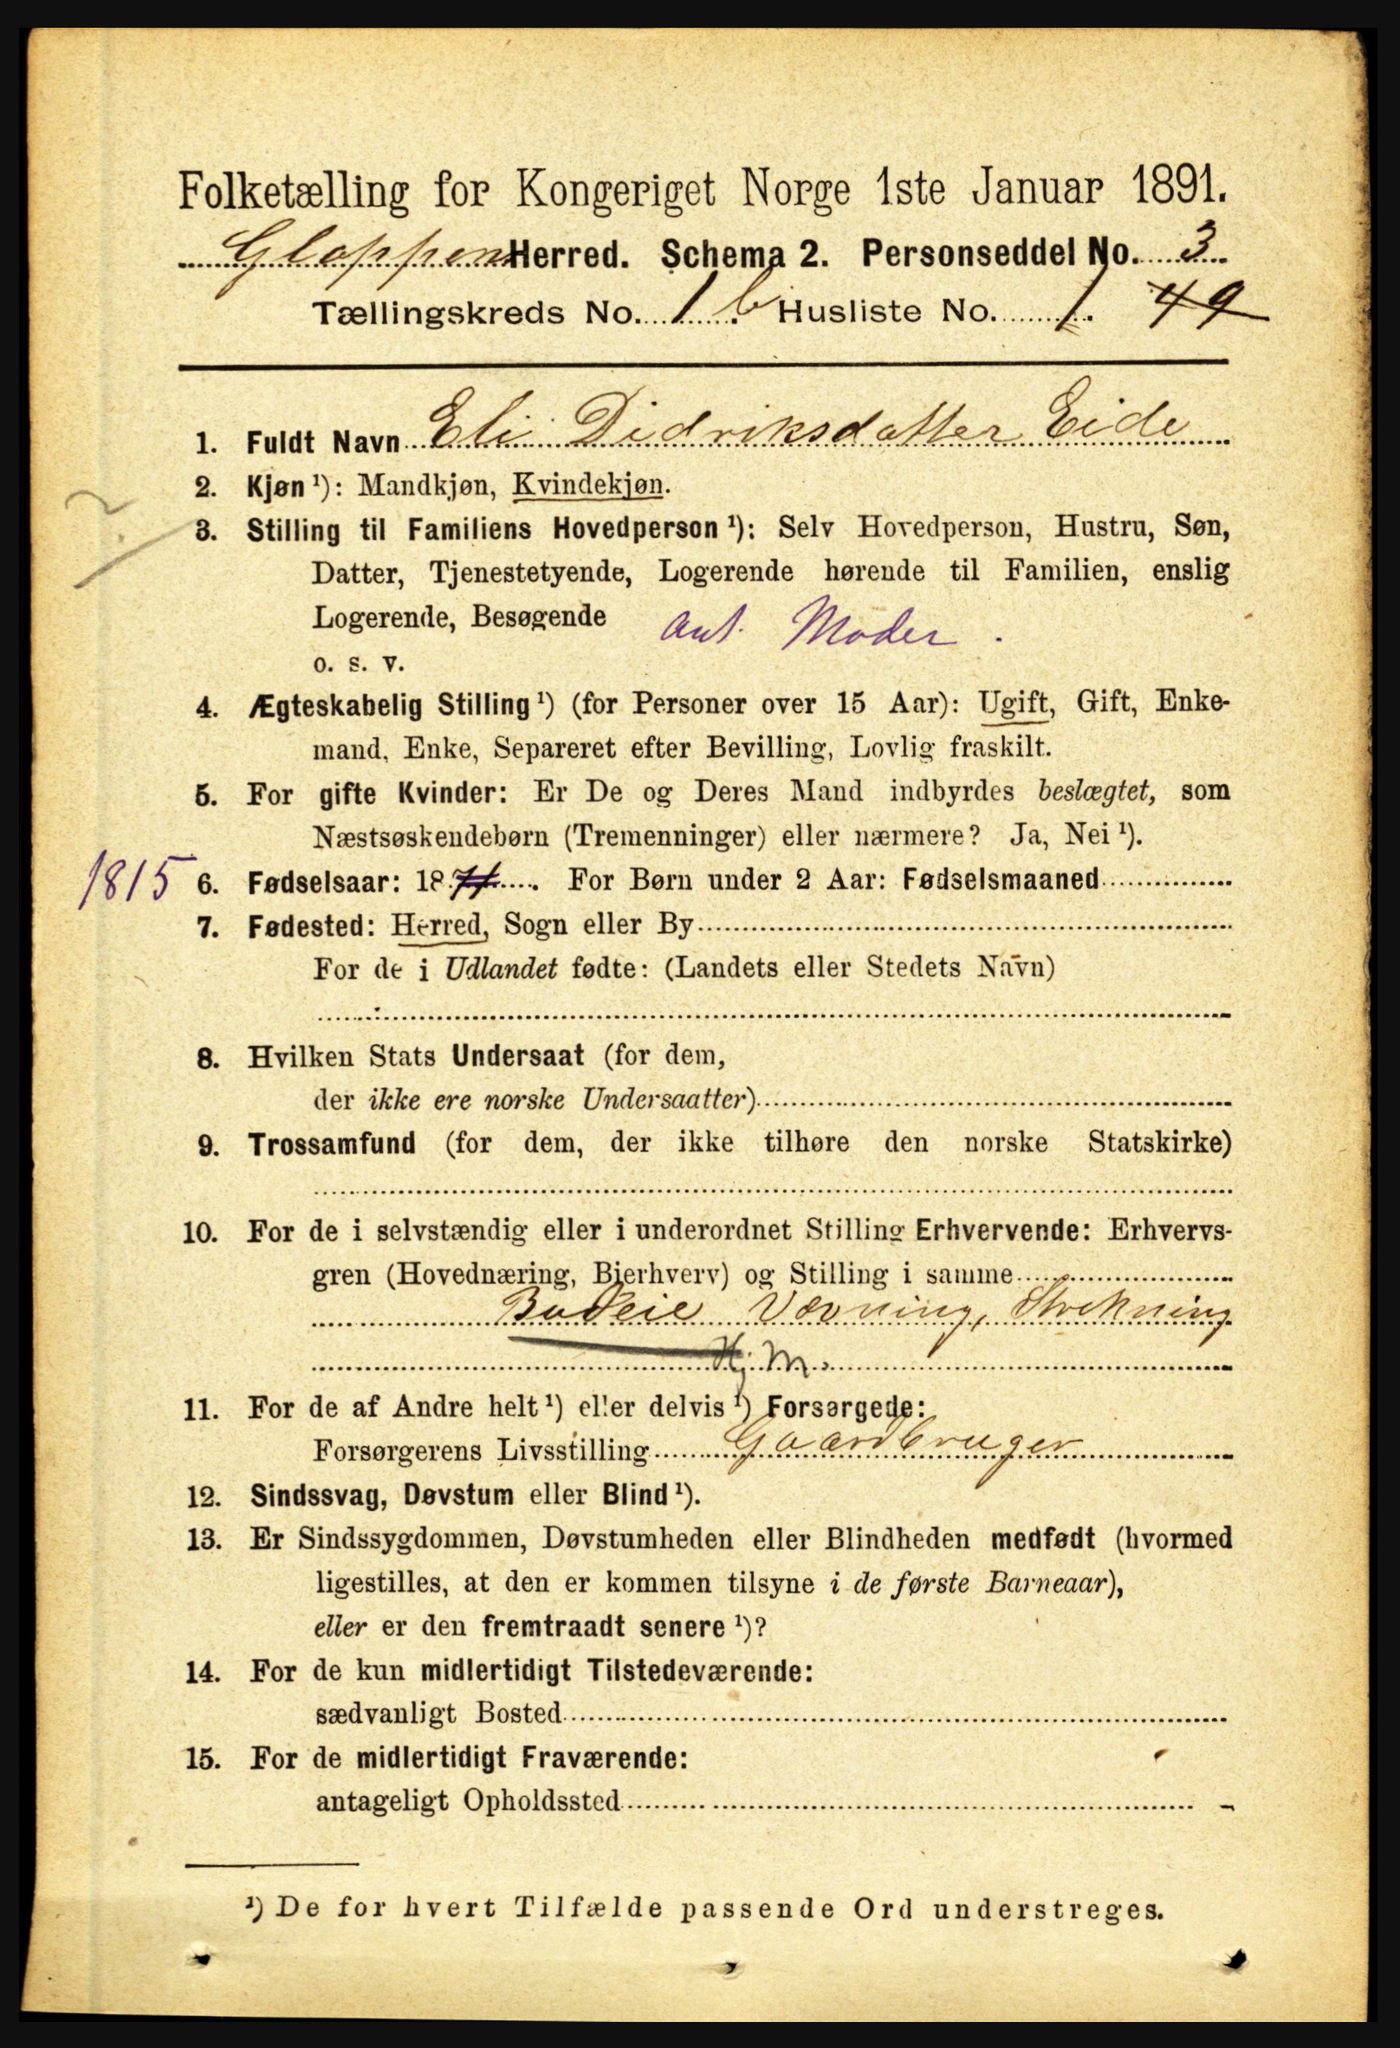 Folketælling for Kongeriget Norge 1ste Januar 1891.
Gloppen Herred. Schema 2. Personseddel No. 3
Tællingskreds No. 1 b Husliste No. 1. 49
1. Fuldt Navn Eli Didriksdatter Eide
2. Kjøn ¹): Mandkjøn, Kvindekjøn.
3. Stilling til Familiens Hovedperson ¹): Selv Hovedperson, Hustru, Søn,
Datter, Tjenestetyende, Logerende hørende til Familien, enslig
Logerende, Besøgende ant. Moder.
o. s. v.
4. Ægteskabelig Stilling ¹) (for Personer over 15 Aar): Ugift, Gift, Enke-
mand, Enke, Separeret efter Bevilling, Lovlig fraskilt.
5. For gifte Kvinder: Er De og Deres Mand indbyrdes beslægtet, som
Næstsøskendebørn (Tremenninger) eller nærmere? Ja, Nei ¹).
1815 6. Fødselsaar: 18 . For Børn under 2 Aar: Fødselsmaaned
7. Fødested: Herred, Sogn eller By
For de i Udlandet fødte: (Landets eller Stedets Navn)
8. Hvilken Stats Undersaat (for dem,
der ikke ere norske Undersaatter)
9. Trossamfund (for dem, der ikke tilhøre den norske Statskirke)
10. For de i selvstændig eller i underordnet Stilling Erhvervende: Erhvervs-
gren (Hovednæring, Bierhverv) og Stilling i samme
Budeie Vævning, Strikning
Hj. M.
11. For de af Andre helt ¹) eller delvis ¹) Forsørgede:
Forsørgerens Livsstilling Gaardbruger
12. Sindssvag, Døvstum eller Blind ¹).
13. Er Sindssygdommen, Døvstumheden eller Blindheden medfødt (hvormed
ligestilles, at den er kommen tilsyne i de første Barneaar),
eller er den fremtraadt senere ¹)?
14. For de kun midlertidigt Tilstedeværende:
sædvanligt Bosted
15. For de midlertidigt Fraværende:
antageligt Opholdssted
¹) De for hvert Tilfælde passende Ord understreges.